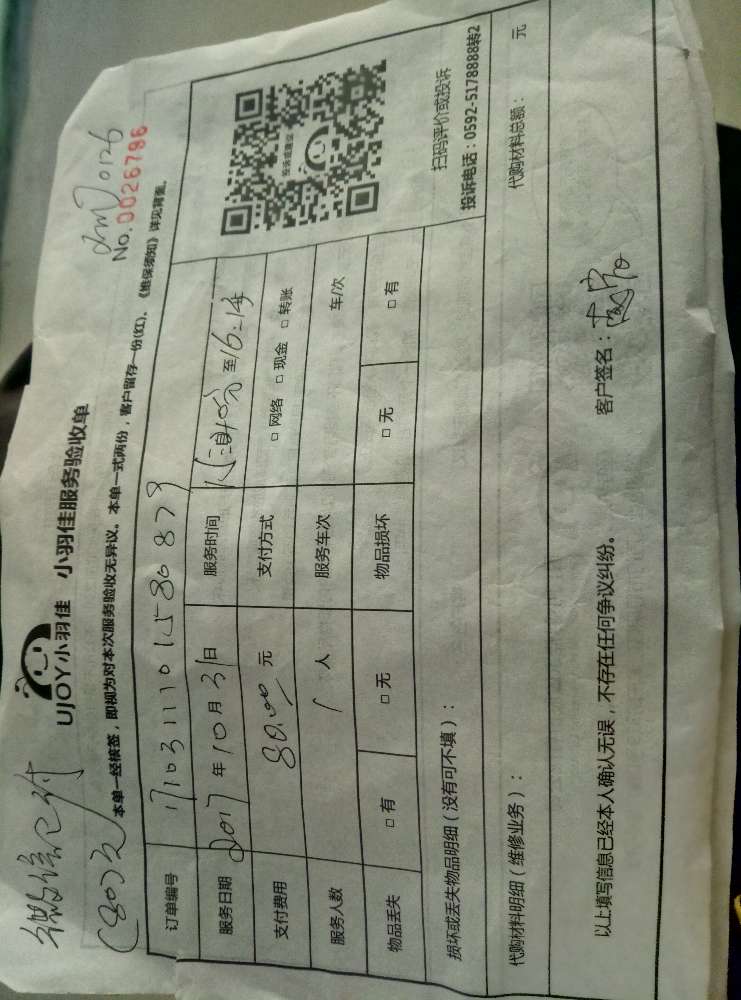 微信已付
(80元)
xm20126
No.0026796
UJOY小羽佳 小羽佳服务验收单
本单一经核签，即视为对本次服务验收无异议。本单一式两份，客户留存一份(红)、《维保须知》详见背面。
订单编号 1710311101580879
服务日期 2017年10月31日 服务时间 至16:14
支付费用 80.00元 支付方式 □网络 □现金 □转账
服务人数 1人 服务车次 车/次
物品丢失 □有 □无 物品损坏 □无 □有
投诉或建议
扫码评价或投诉
投诉电话：0592-5178888转2
损坏或丢失物品明细（没有可不填）：
代购材料明细（维修业务）： 代购材料总额： 元
以上填写信息已经本人确认无误，不存在任何争议纠纷。 客户签名：